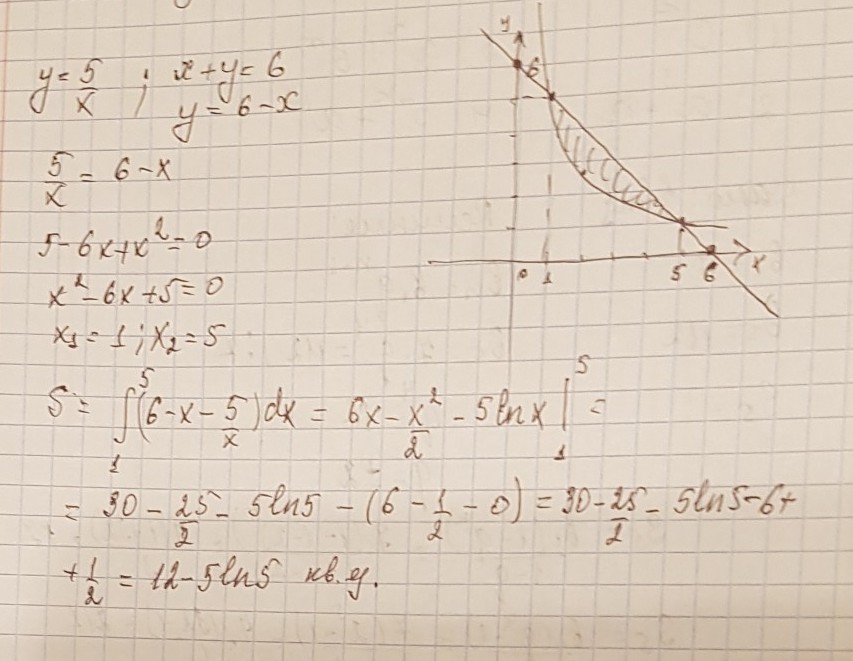 y = 5/x ; x + y = 6
y = 6 - x
5/x = 6 - x
5 - 6x + x² = 0
x² - 6x + 5 = 0
x₁ = 1 ; x₂ = 5
S = ∫₁⁵ (6 - x - 5/x) dx = 6x - x²/2 - 5 ln x |₁⁵ =
= 30 - 25/2 - 5 ln 5 - (6 - 1/2 - 0) = 30 - 25/2 - 5 ln 5 - 6 +
+ 1/2 = 12 - 5 ln 5 кв. ед.
y
6
0 1 5 6 x